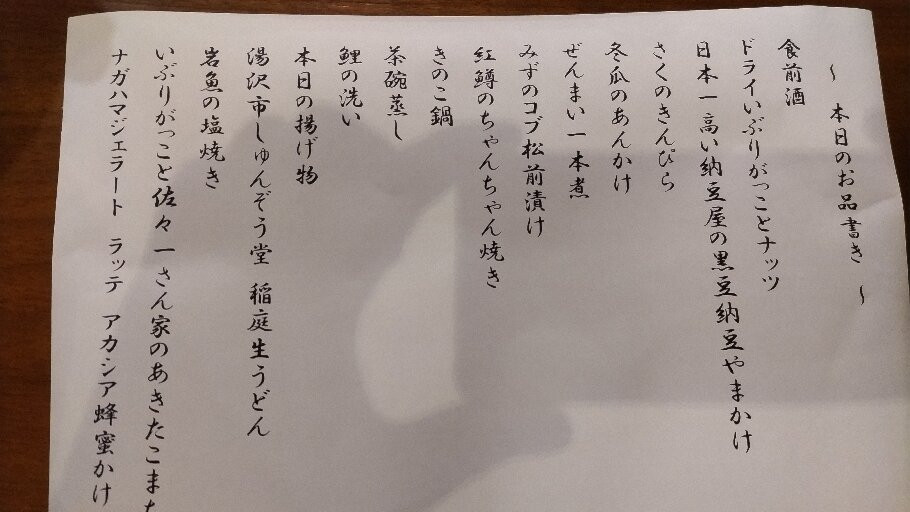 ～ 本日のお品書き ～
食前酒
ドライいぶりがっことナッツ
日本一高い納豆屋の黒豆納豆やまかけ
さくのきんぴら
冬瓜のあんかけ
ぜんまい一本煮
みずのコブ松前漬け
紅鱒のちゃんちゃん焼き
きのこ鍋
茶碗蒸し
鯉の洗い
本日の揚げ物
湯沢市しゅんぞう堂 稲庭生うどん
岩魚の塩焼き
いぶりがっこと佐々一さん家のあきたこまち
ナガハマジェラート ラッテ アカシア蜂蜜かけ